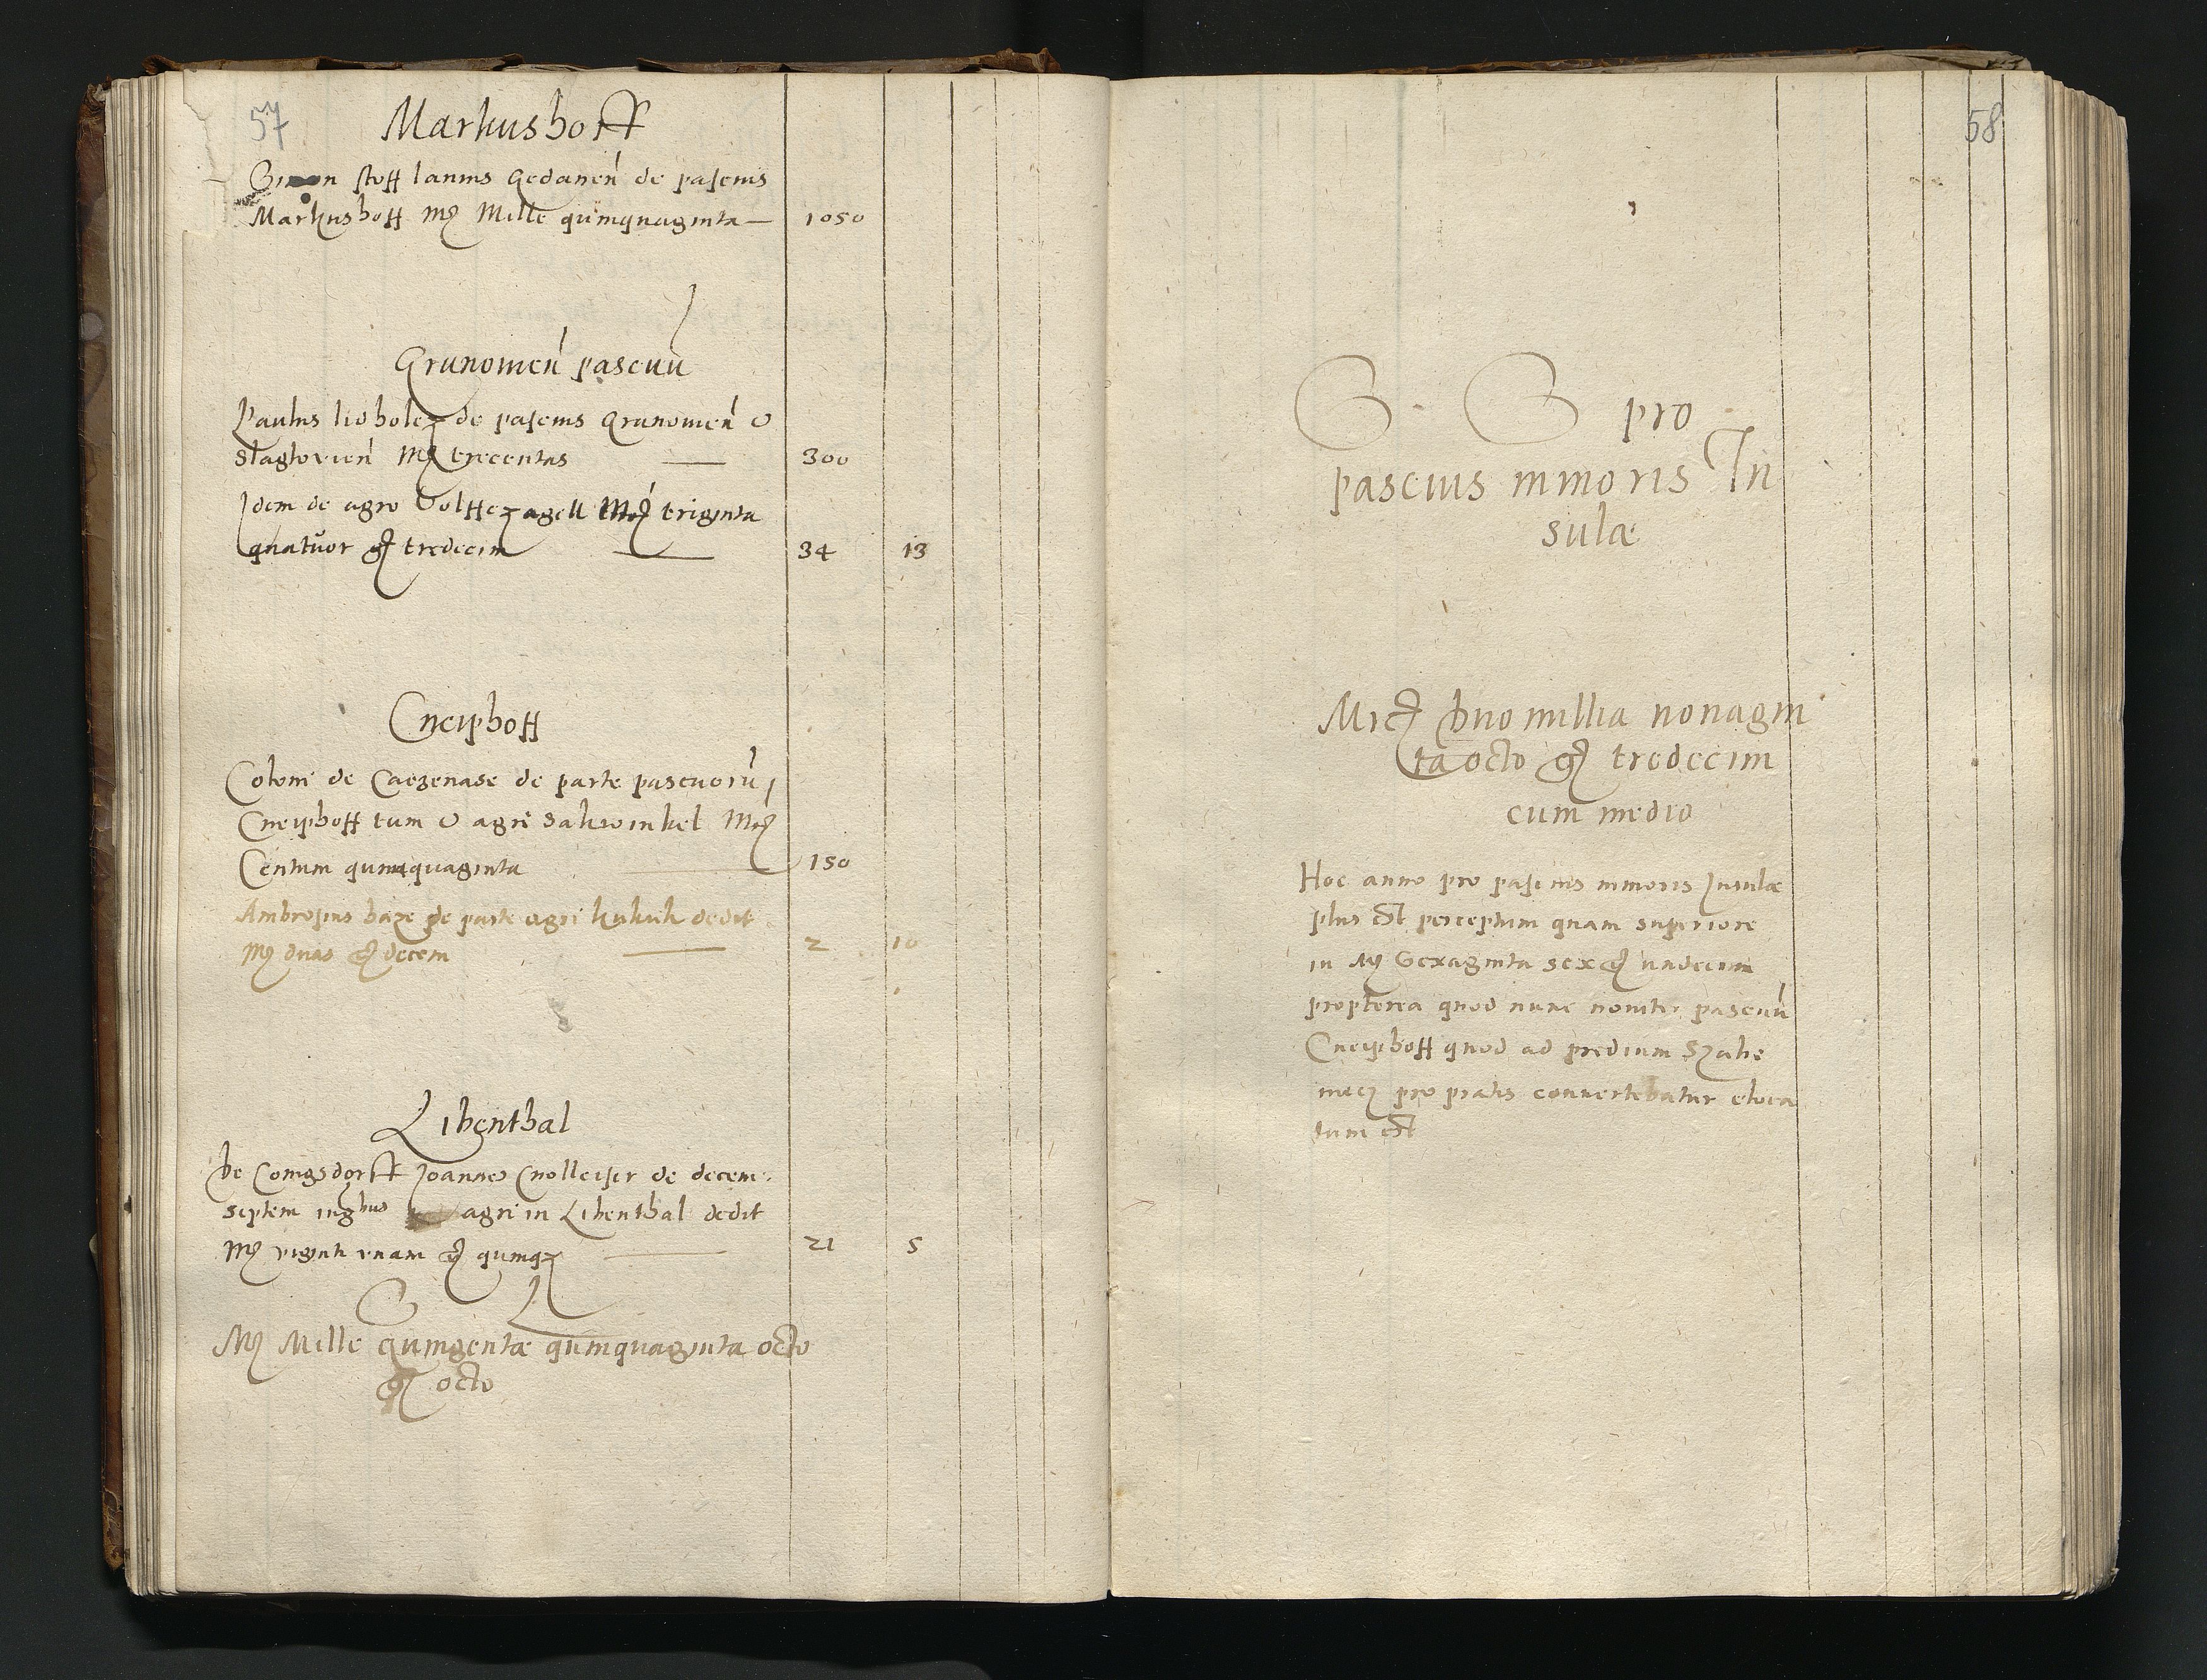 57
Markushoff
Simon stoff lanius Gedanen de pascuis
Markushoff Mrc Mille quinquaginta — 1050
Grunowien pascuu
Paulus liobolez de pascuis Grunowien &
Staglowien Mrc trecentas — 300
Idem de agro Volffezagell Mrc triginta
quatuor gr tredecim — 34 13
Cneiphoff
Coloni de Caczenase de parte pascuoru
Cneiphoff tum & agri Sakwinkel Mrc
Centum quinquaginta 150
Ambrosius haze de parte agri kukuk dedit
Mrc duas gr decem — 2 10
Libenthal
De Conigsdorff Joannes Cnolleiser de decem
septem iugbus agri in Libenthal dedit
Mrc viginti vnam gr quinqz — 21 5
S L
Mrc Mille quingentæ quinquaginta octo
gr octo
58
S S pro
pascuis minoris In
sulæ
Mrc duo millia nonagin
ta octo gr tredecim
cum medio
Hoc anno pro pascuis minoris Insulæ
plus est perceptum quam superiore
in Mrc Sexaginta sex gr undecim
propterea quod nunc noviter pascuu
Cneiphoff quod ad predium Szahe
niecz pro pratis convertebatur eloca
tum est